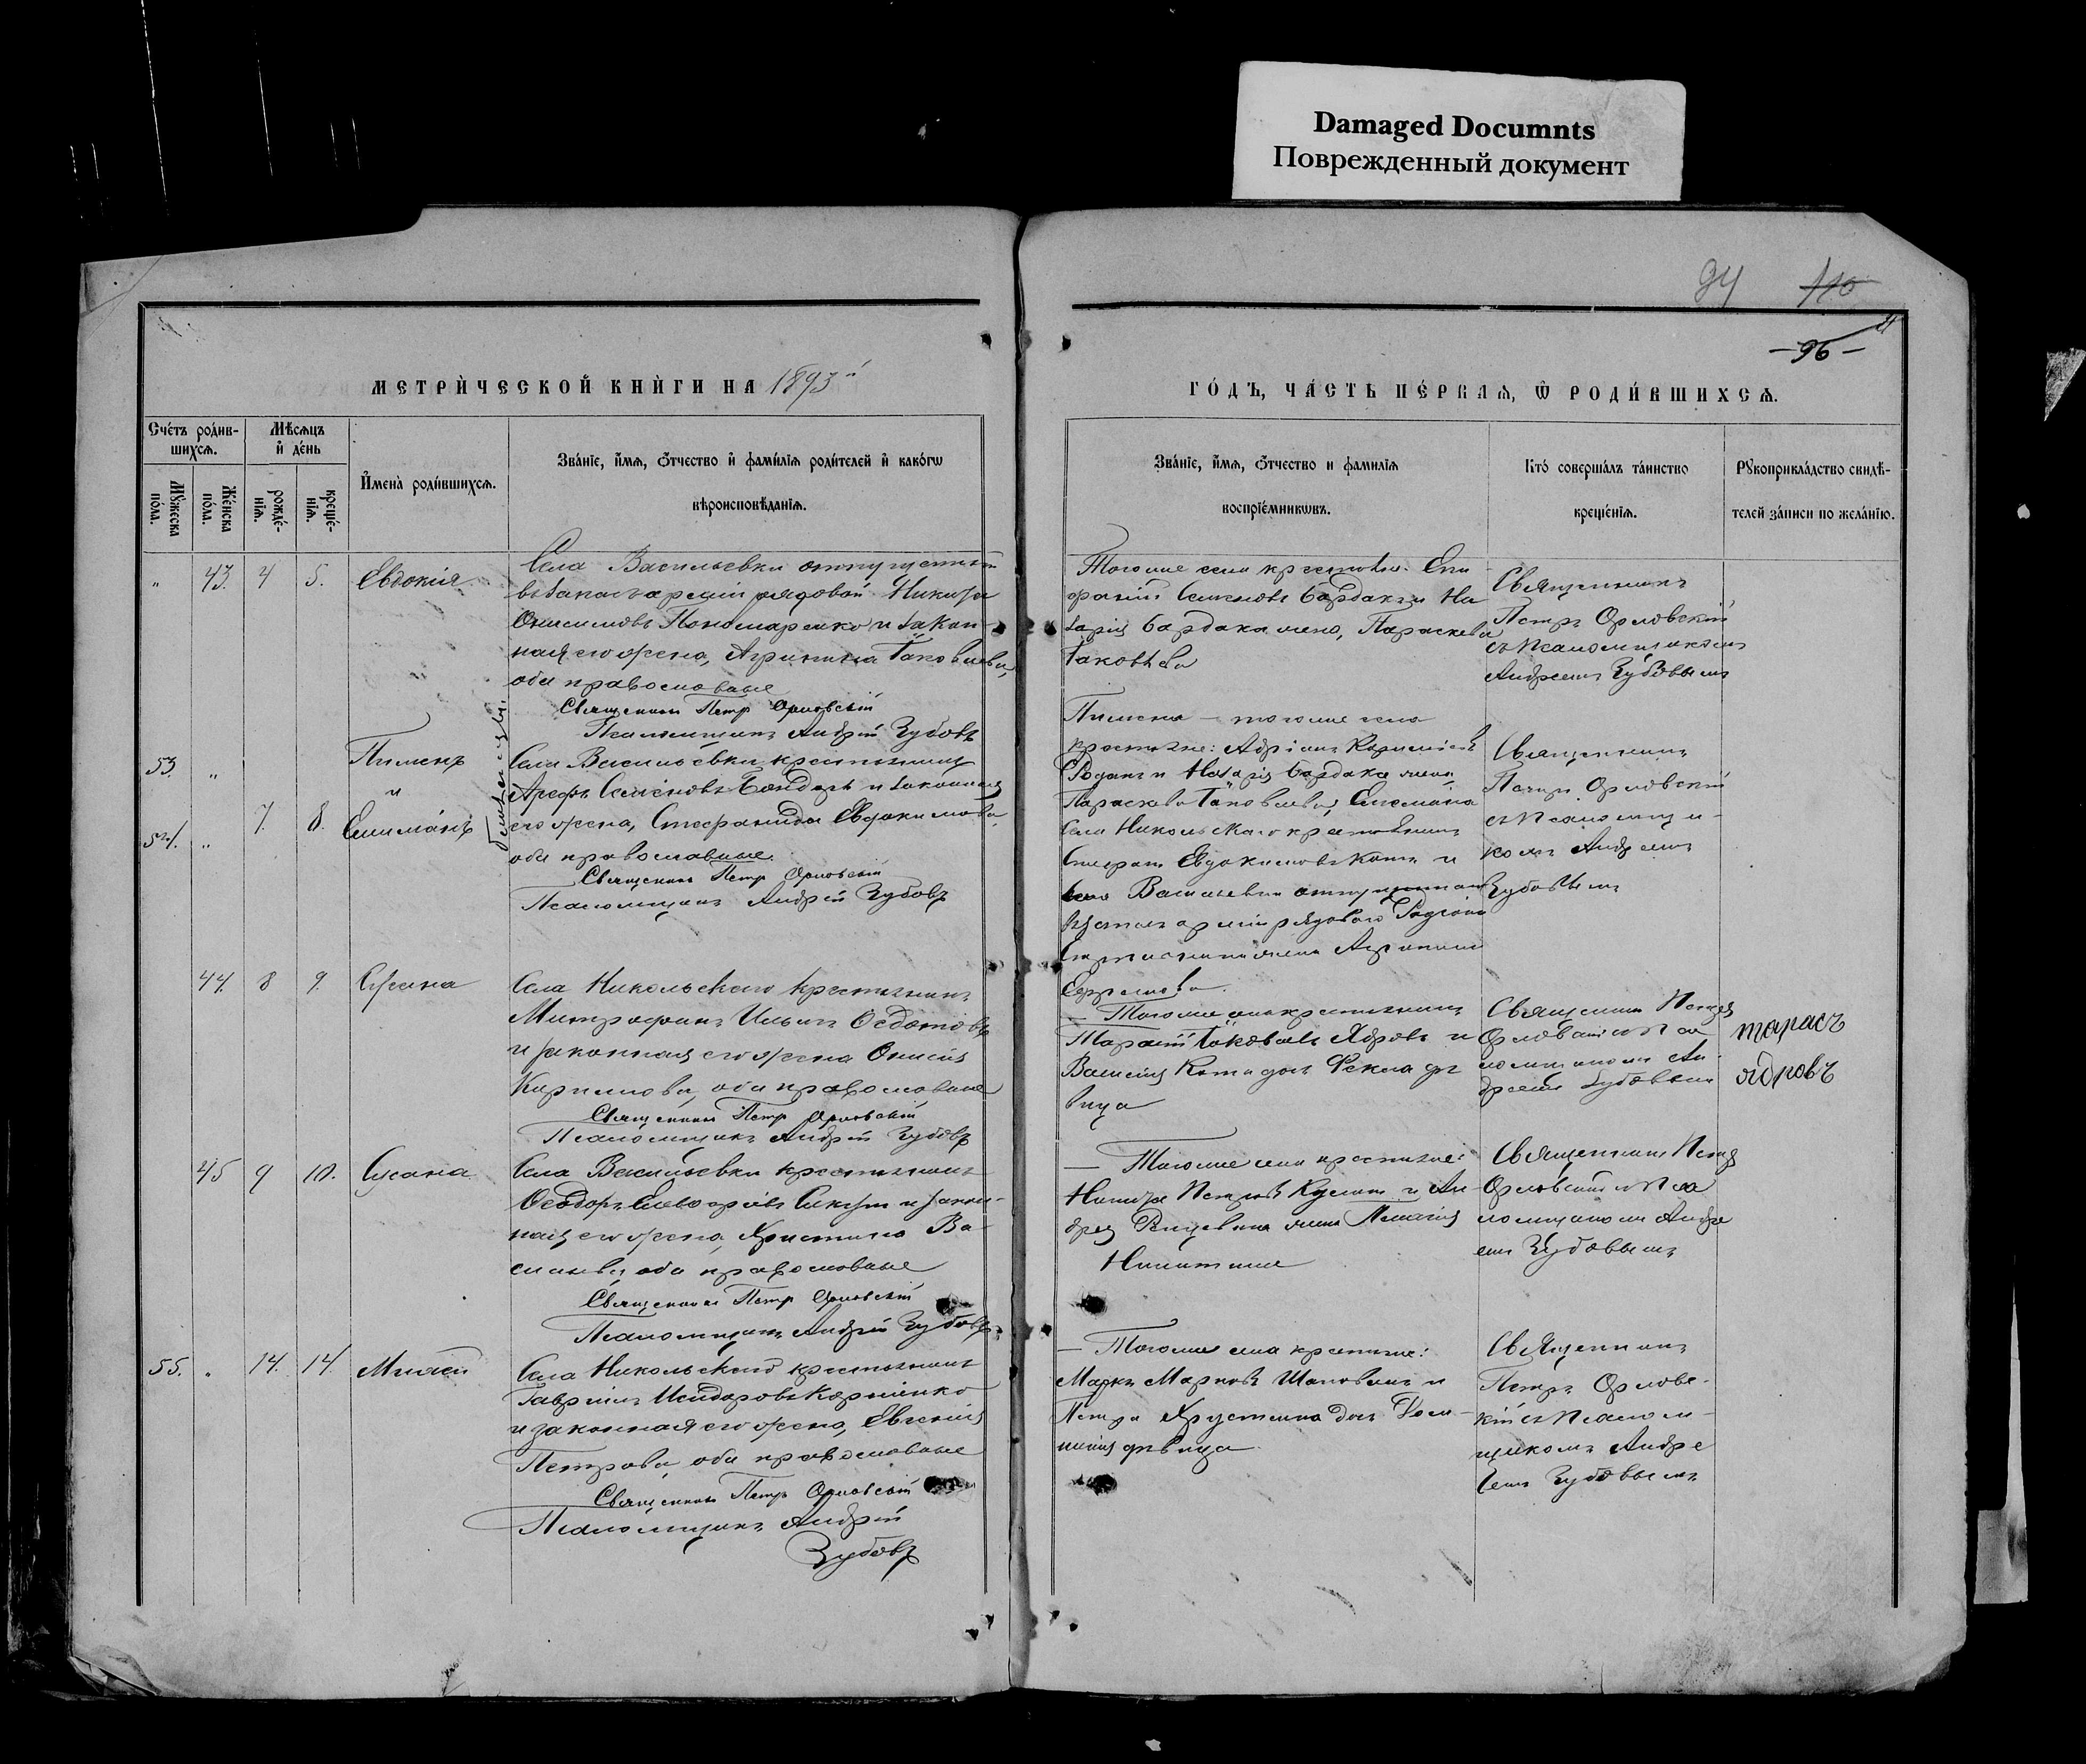 Damaged Documnts
Поврежденный документ
94 110
96
МЕТРИ́ЧЕСКОЙ КНИ́ГИ НА 1893
ГО́ДЪ, ЧА́СТЬ ПЕ́РВАѦ, Ѿ РОДИ́ВШИХСѦ.
Сче́тъ роди́в-
шихсѧ.
Мꙋ́жеска по́ла.
Же́нска по́ла.
Мѣ́сѧцъ
и҆ де́нь
рожде́-
нїѧ.
креще́-
нїѧ.
И҆мена̀ роди́вшихсѧ.
Зва́нїе, и҆́мѧ, ѻ҆́тчество и҆ фамѝлїѧ роди́телей и҆ како́гѡ
вѣроисповѣ́данїѧ.
Зва́нїе, и҆́мѧ, ѻ҆́тчество и фамилїѧ
воспрїе́мникѡвъ.
Кто́ соверша́лъ та́инство
креще́нїѧ.
Рꙋкоприкла́дство свидѣ́-
телей за́писи по жела́нїю.
" 43. 4 5. Евдокія
Села Васильевки отпущенный
въ запас арміи рядовой Никита
Онисимовъ Пономаренко и закон-
ная его жена, Агрипина Іаковлева,
оба православные
Священникъ Петръ Орловскій
Псаломщикъ Андрей Зубовъ
Тогоже села крестьяне
Семеновъ Бардакъ и На
зарія Бардака жена, Параскева
Іаковлева
Священникъ
Петръ Орловскій
съ псаломщикомъ
Андреемъ Зубовымъ
53. "
54. "
7. 8.
Пименъ
и
близнецы.
Села Васильевки крестьянинъ
Арефа Семеновъ Бондарь и законная
его жена, Стефанида Евдокимова,
оба православные.
Священникъ Петръ Орловскій
Псаломщикъ Андрей Зубовъ
Пимена — тогоже села
крестьяне: Адріанъ
и Назарія Бардака жена
Параскева Іаковлева;
Села Никольскаго крестьянинъ
Евдокимовъ и
села Васильевки
арміи рядового Родіона
жена Агрипина
Ефремова.
Священникъ
Петръ Орловскій
съ псаломщи-
комъ Андреемъ
Зубовымъ
44. 8 9. Сусана
Села Никольскаго крестьянинъ
Митрофанъ Ильинъ Федотовъ
и законная его жена Онисія
Кириллова, оба православные
Священникъ Петръ Орловскій
Псаломщикъ Андрей Зубовъ
Тогоже села крестьянинъ
Тарасій Іаковлевъ Ядровъ и
Василія дочь Фекла дѣ
вица
Священникъ Петръ
Орловскій съ пса
ломщикомъ Ан-
дреемъ Зубовымъ
тарасъ
ядровъ
45 9 10. Сусана
Села Васильевки крестьянинъ
Ѳеодоръ и закон-
ная его жена, Христина Ва
сильева, оба православные
Священникъ Петръ Орловскій
Псаломщикъ Андрей Зубовъ
— Тогоже села крестьяне:
Никита Петровъ и Ан
дрея жена Пелагія
Никитина
Священникъ Петръ
Орловскій съ пса
ломщикомъ Андре
емъ Зубовымъ
55. " 14. 14. Мисаил
Села Никольскаго крестьянинъ
Гавріилъ Исидоровъ Корніенко
и законная его жена, Евгенія
Петрова, оба православные
Священникъ Петръ Орловскій
Псаломщикъ Андрей
Зубовъ
— Тогоже села крестьяне:
Маркъ Марковъ Шаповалъ и
Петра дочь Дом-
никія дѣвица
Священникъ
Петръ Орловс-
кій съ псалом-
щикомъ Андре
емъ Зубовымъ